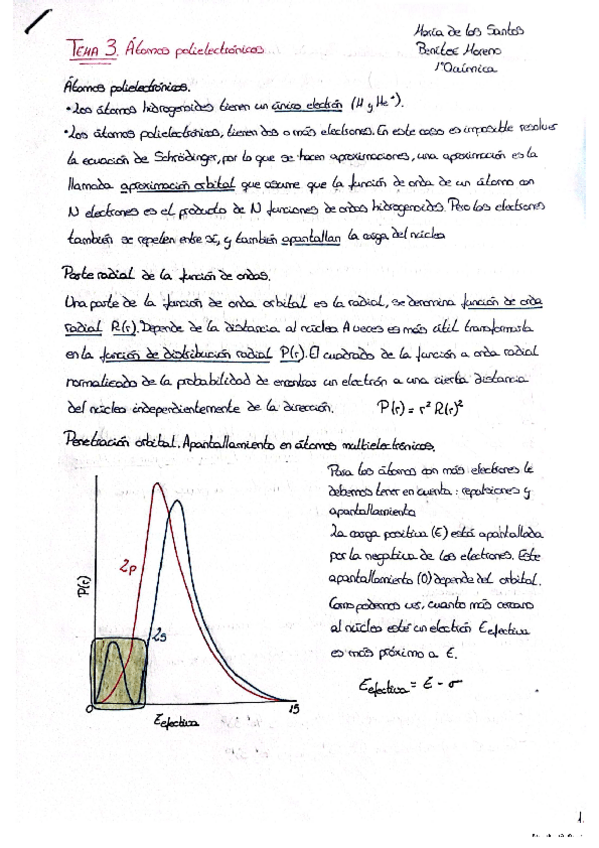 María de los Santos
TEMA 3. Átomos polielectrónicos
Benítez Moreno
1º Química
Átomos polielectrónicos.
• Los átomos hidrogenoides tienen un único electrón (H y He⁺).
• Los átomos polielectrónicos, tienen dos o más electrones. En este caso es imposible resolver
la ecuación de Schrödinger, por lo que se hacen aproximaciones, una aproximación es la
llamada aproximación orbital que asume que la función de onda de un átomo con
N electrones es el producto de N funciones de ondas hidrogenoides. Pero los electrones
también se repelen entre sí, y también apantallan la carga del núcleo
Parte radial de la función de ondas.
Una parte de la función de onda orbital es la radial, se denomina función de onda
radial R(r). Depende de la distancia al núcleo. A veces es más útil transformarla
en la función de distribución radial P(r). El cuadrado de la función a onda radial
normalizado da la probabilidad de encontrar un electrón a una cierta distancia
del núcleo independientemente de la dirección. P(r) = r² R(r)²
Penetración orbital. Apantallamiento en átomos multielectrónicos.
Para los átomos con más electrones le
debemos tener en cuenta: repulsiones y
apantallamiento
La carga positiva (Z) está apantallada
por la negativa de los electrones. Este
apantallamiento (σ) depende del orbital.
Como podemos ver, cuanto más cercano
al núcleo esté un electrón Z efectiva
es más próximo a Z.
Z efectiva = Z - σ
P(r)
2p
2s
0
15
Z efectiva
1.